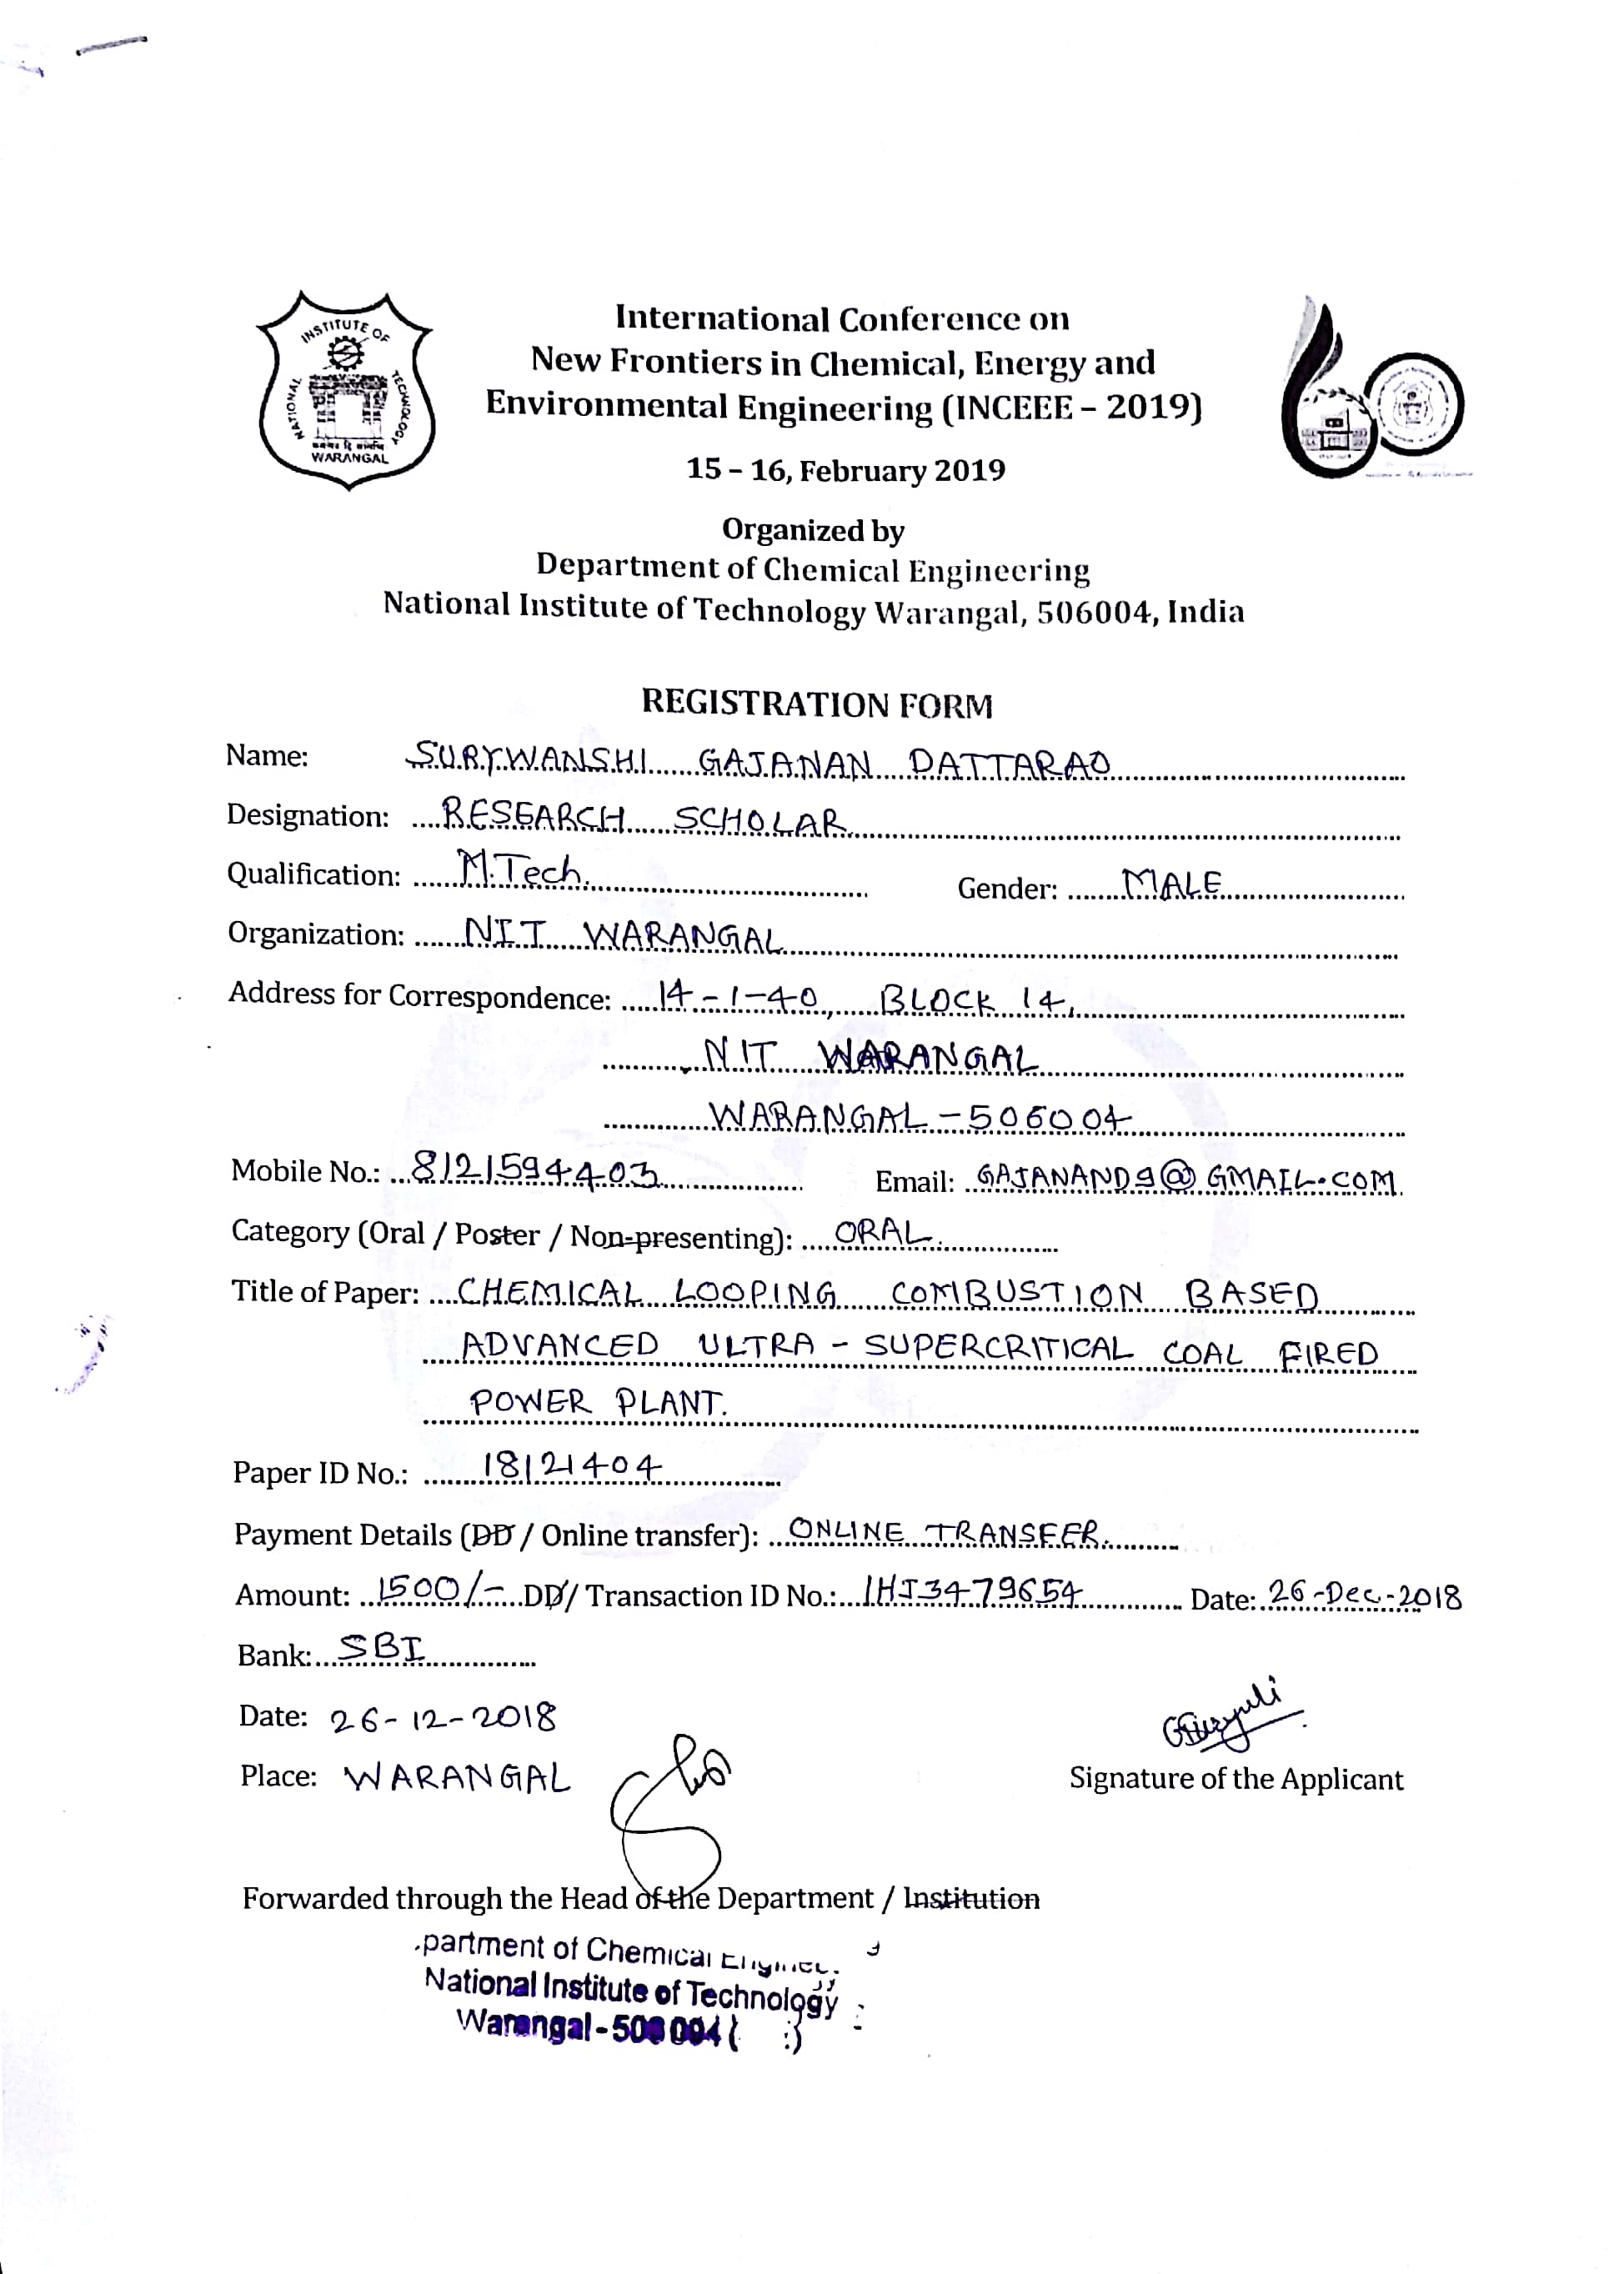 INSTITUTE OF
NATIONAL
TECHNOLOGY
WARANGAL
International Conference on
New Frontiers in Chemical, Energy and
Environmental Engineering (INCEEE – 2019)
15 – 16, February 2019
Organized by
Department of Chemical Engineering
National Institute of Technology Warangal, 506004, India
REGISTRATION FORM
Name: SURYWANSHI GAJANAN DATTARAO
Designation: RESEARCH SCHOLAR
Qualification: M.Tech. Gender: MALE
Organization: NIT WARANGAL
Address for Correspondence: 14-1-40, BLOCK 14,
NIT WARANGAL
WARANGAL-506004
Mobile No.: 8121594403 Email: GAJANAND9@GMAIL.COM
Category (Oral / Poster / Non-presenting): ORAL.
Title of Paper: CHEMICAL LOOPING COMBUSTION BASED
ADVANCED ULTRA-SUPERCRITICAL COAL FIRED
POWER PLANT.
Paper ID No.: 18121404
Payment Details (DD / Online transfer): ONLINE TRANSFER.
Amount: 1500/- DD/ Transaction ID No.: IHJ3479654 Date: 26-Dec-2018
Bank: SBI
Date: 26-12-2018
Place: WARANGAL
Signature of the Applicant
Forwarded through the Head of the Department / Institution
partment of Chemical
National Institute of Technology
Warangal-506 004